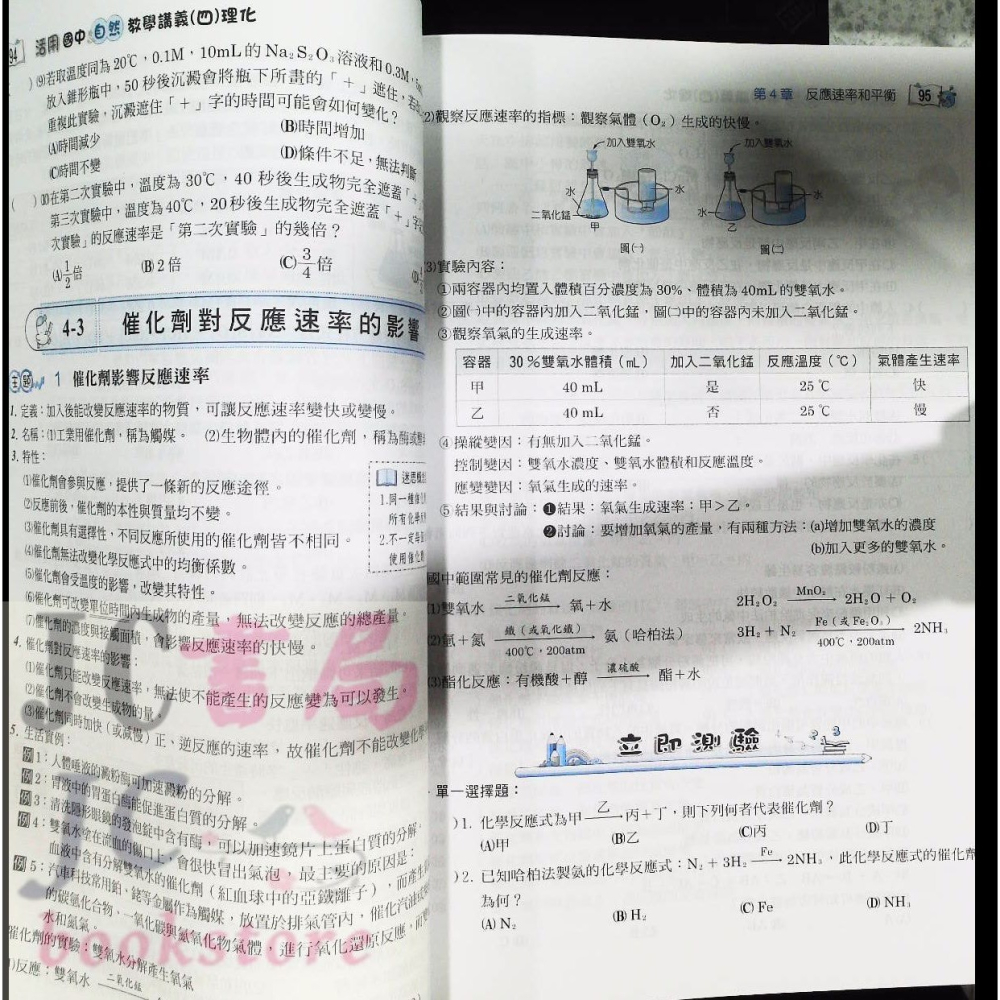 94 活用國中自然 教學講義(四)理化
)⑼若取溫度同為20℃,0.1M,10mL的Na₂S₂O₃溶液和0.3M,
放入錐形瓶中,50秒後沉澱會將瓶下所畫的「+」遮住,
重複此實驗,沉澱遮住「+」字的時間可能會如何變化?
(A)時間減少 (B)時間增加
(C)時間不變 (D)條件不足,無法判斷
( )⑽在第二次實驗中,溫度為30℃,40秒後生成物完全遮蓋「+」
第三次實驗中,溫度為40℃,20秒後生成物完全遮蓋「+」字
次實驗」的反應速率是「第二次實驗」的幾倍?
(A)1/2倍 (B)2倍 (C)3/4倍
4-3 催化劑對反應速率的影響
主題 1 催化劑影響反應速率
1. 定義:加入後能改變反應速率的物質,可讓反應速率變快或變慢。
2. 名稱:⑴工業用催化劑,稱為觸媒。 ⑵生物體內的催化劑,稱為酶或
3. 特性:
⑴催化劑會參與反應,提供了一條新的反應途徑。
⑵反應前後,催化劑的本性與質量均不變。
⑶催化劑具有選擇性,不同反應所使用的催化劑皆不相同。
⑷催化劑無法改變化學反應式中的均衡係數。
⑸催化劑會受溫度的影響,改變其特性。
⑹催化劑可改變單位時間內生成物的產量,無法改變反應的總產量。
⑺催化劑的濃度與接觸面積,會影響反應速率的快慢。
迷思概
1.同一種催化
所有化學
2.不一定每
使用催化
4. 催化劑對反應速率的影響:
⑴催化劑只能改變反應速率,無法使不能產生的反應變為可以發生。
⑵催化劑不會改變生成物的量。
⑶催化劑同時加快(或減慢)正、逆反應的速率,故催化劑不能改變化學
5. 生活實例:
例1:人體唾液的澱粉酶可加速澱粉的分解。
例2:胃液中的胃蛋白酶能促進蛋白質的分解。
例3:清洗隱形眼鏡的發泡錠中含有酶,可以加速鏡片上蛋白質的分解。
例4:雙氧水塗在流血的傷口上,會很快冒出氣泡,最主要的原因是:
血液中含有分解雙氧水的催化劑(紅血球中的亞鐵離子),而產生
例5:汽車科技常用鉑、銠等金屬作為觸媒,放置於排氣管內,催化汽油
的碳氫化合物、一氧化碳與氮氧化物氣體,進行氧化還原反應,而
水和氮氣。
催化劑的實驗:雙氧水分解產生氧氣
)反應:雙氧水 二氧化錳
書局
bookstore
第4章 反應速率和平衡 95
2)觀察反應速率的指標:觀察氣體(O₂)生成的快慢。
加入雙氧水 加入雙氧水
水 水 水 水
二氧化錳 甲 乙
圖㈠ 圖㈡
3)實驗內容:
①兩容器內均置入體積百分濃度為30%、體積為40mL的雙氧水。
②圖㈠中的容器內加入二氧化錳,圖㈡中的容器內未加入二氧化錳。
③觀察氧氣的生成速率。
容器 30%雙氧水體積(mL) 加入二氧化錳 反應溫度(℃) 氣體產生速率
甲 40 mL 是 25℃ 快
乙 40 mL 否 25℃ 慢
④操縱變因:有無加入二氧化錳。
控制變因:雙氧水濃度、雙氧水體積和反應溫度。
應變變因:氧氣生成的速率。
⑤結果與討論:❶結果:氧氣生成速率:甲>乙。
❷討論:要增加氧氣的產量,有兩種方法:(a)增加雙氧水的濃度
(b)加入更多的雙氧水。
國中範圍常見的催化劑反應:
(1)雙氧水 二氧化錳→ 氧+水 2H₂O₂ MnO₂→ 2H₂O + O₂
(2)氫+氮 鐵(或氧化鐵)→ 400℃,200atm 氨(哈柏法) 3H₂ + N₂ Fe(或Fe₂O₃)→ 400℃,200atm 2NH₃
(3)酯化反應:有機酸+醇 濃硫酸→ 酯+水
立即測驗
單一選擇題:
)1. 化學反應式為甲 乙→ 丙+丁,則下列何者代表催化劑?
(A)甲 (B)乙 (C)丙 (D)丁
)2. 已知哈柏法製氨的化學反應式:N₂ + 3H₂ Fe→ 2NH₃,此化學反應式的催化劑
為何?
(A) N₂ (B) H₂ (C) Fe (D) NH₃